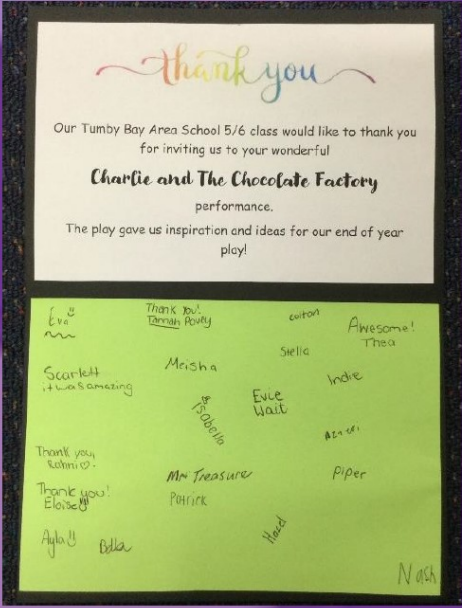 thank you
Our Tumby Bay Area School 5/6 class would like to thank you
for inviting us to your wonderful
Charlie and The Chocolate Factory
performance.
The play gave us inspiration and ideas for our end of year
play!
Eva
Thank you!
Tannah Pavey
colton
Awesome!
Thea
Scarlett
it was amazing
Meisha
Siella
Indie
Isabella
Evie
Wait
Thank you,
Rahni
Mr Treasure
Piper
Thank you!
Eloise
Patrick
Ayla
Bella
Hazel
Nash